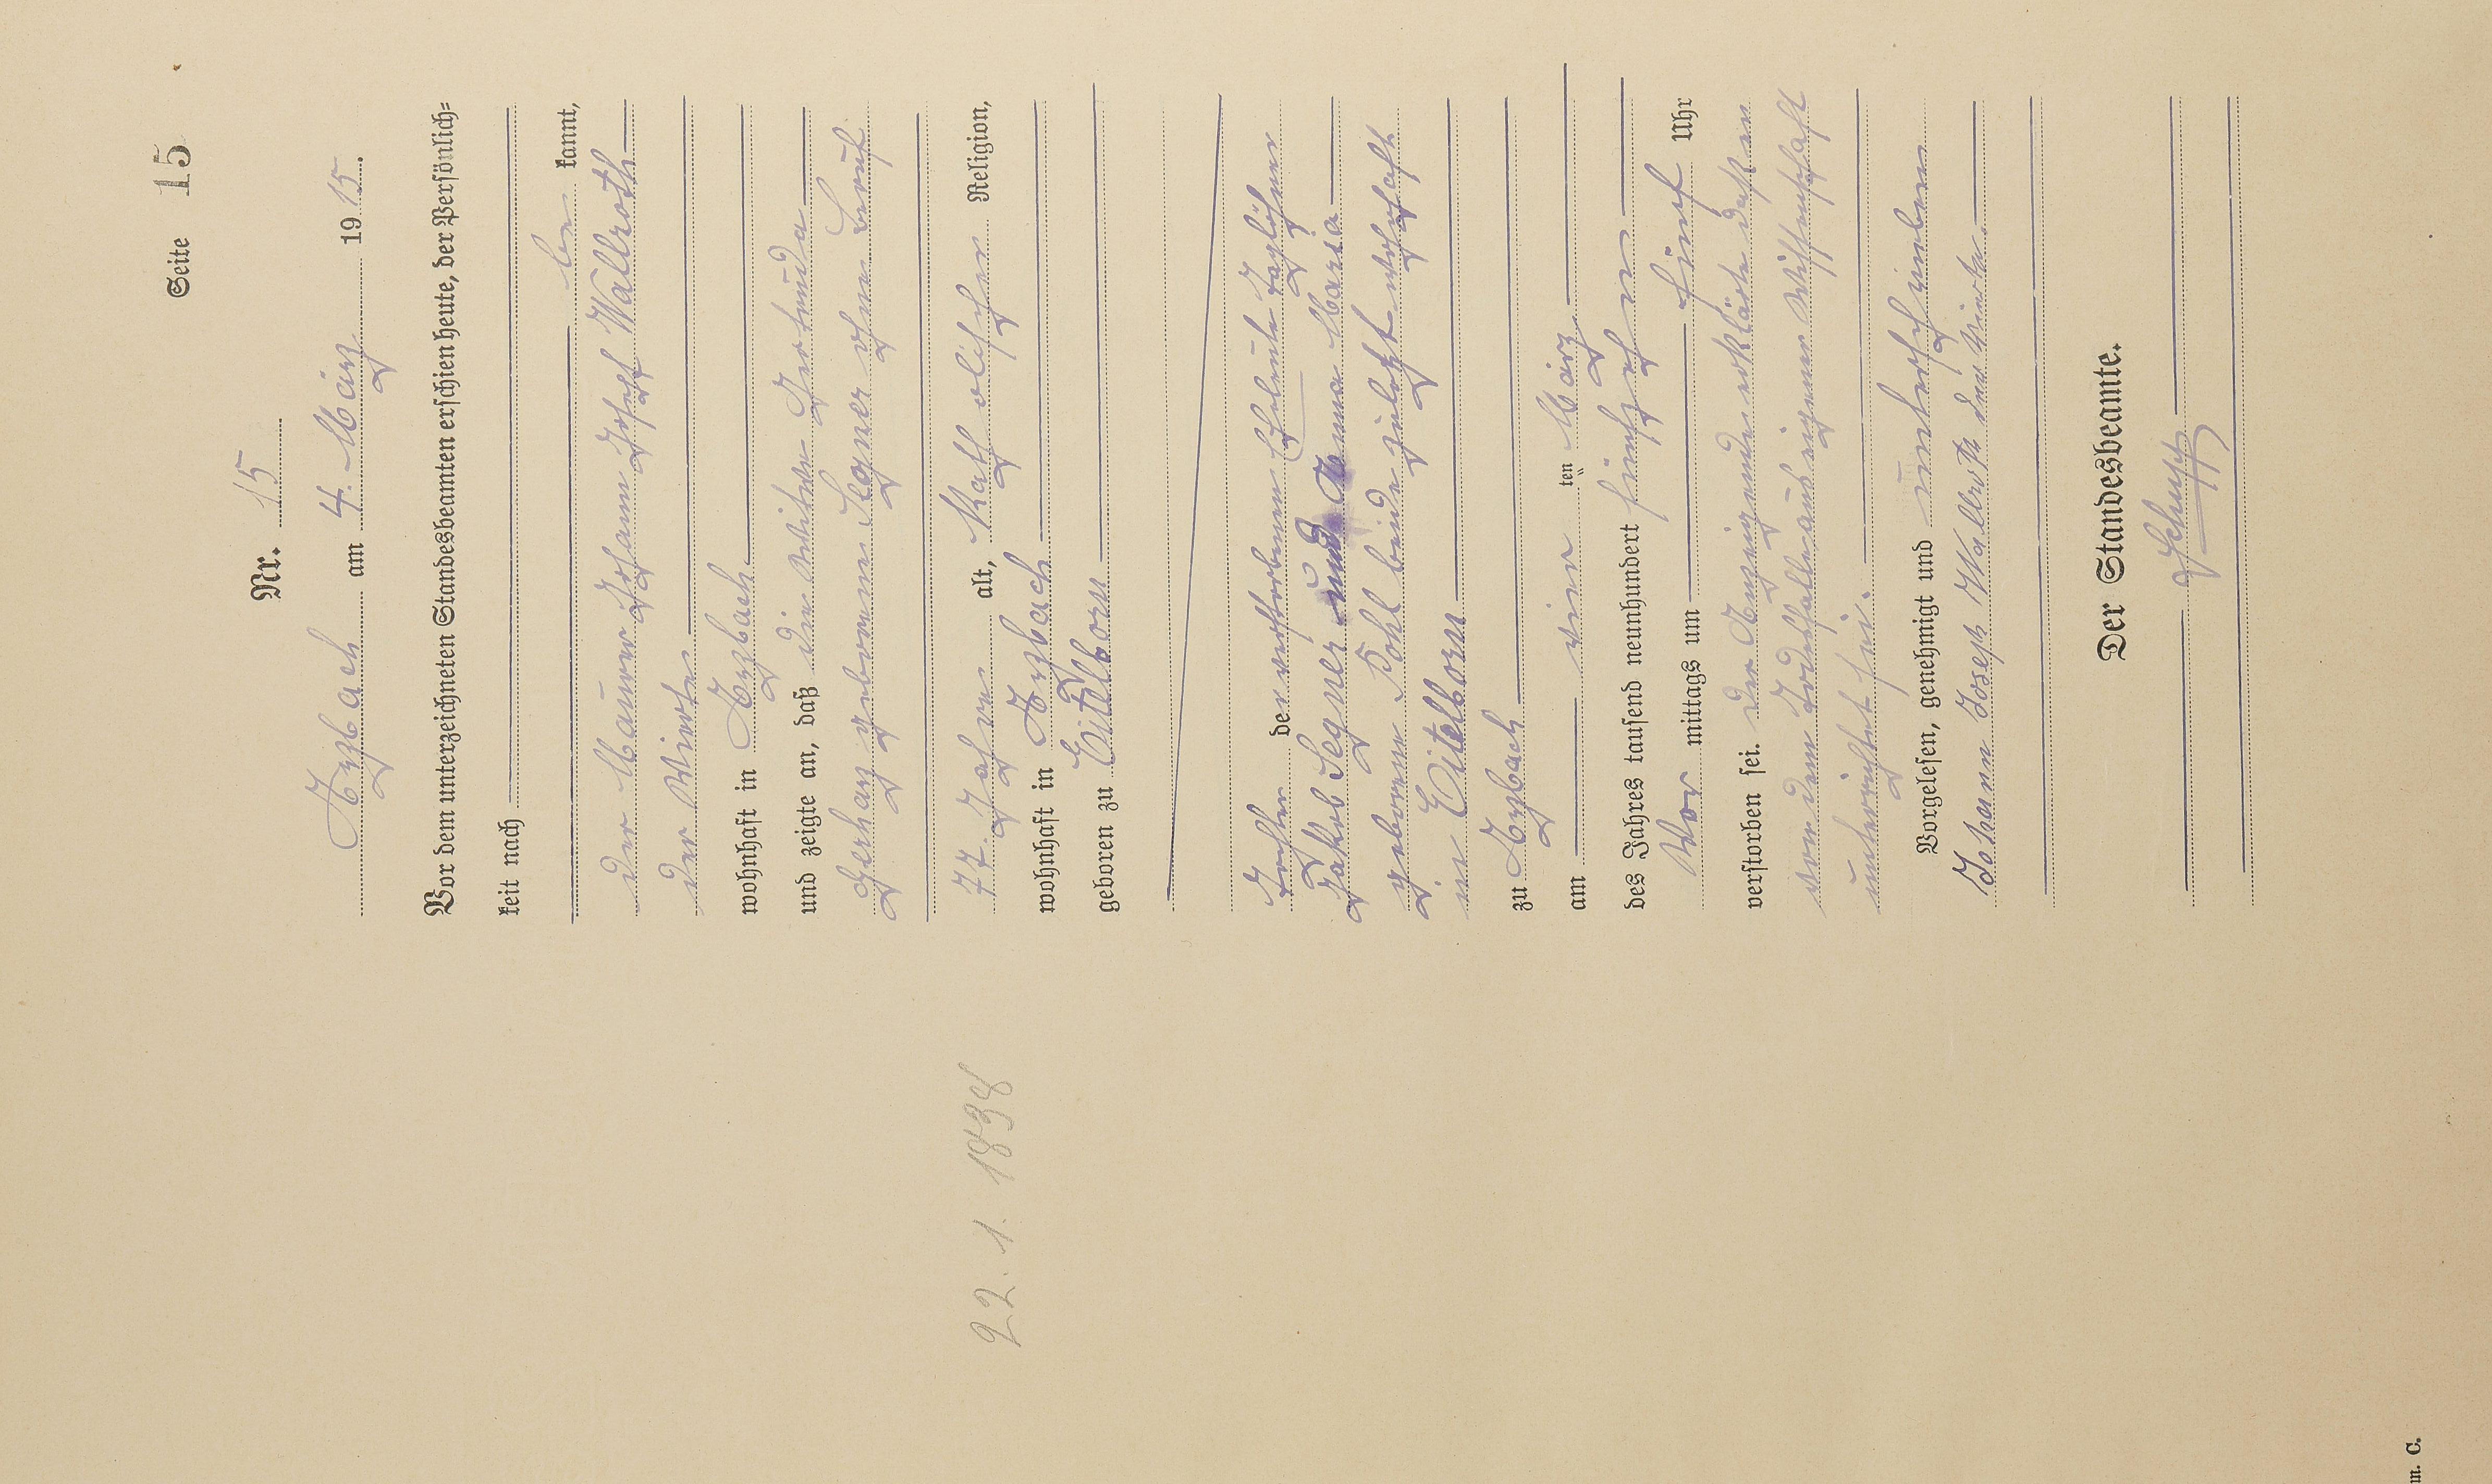 Seite 15
Nr. 15
Arzbach am 4. März 1915.
Vor dem unterzeichneten Standesbeamten erschien heute, der Persönlich=
keit nach
be kannt,
der Maurer Johann Josef Wallroth
der Vierte
wohnhaft in Arzbach
und zeigte an, daß die Witwe Gertruda
Gerharz geborene Segner ohne Beruf
77 Jahre alt, katholischer Religion,
wohnhaft in Arzbach
geboren zu Eitelborn
Tochter der verstorbenen Eheleute Taglöhner
Jakob Segner und Anna Maria
geborene Kohl beide zuletzt wohnhaft
in Eitelborn
zu Arzbach
am vier ten März
des Jahres tausend neunhundert fünfzehn
Vor mittags um fünf Uhr
verstorben sei. Der Anzeigende erklärte daß er
von dem Todesfalle aus eigener Wissenschaft
unterrichtet sei.
Vorgelesen, genehmigt und unterschrieben
Johann Josef Wallroth der Vierte.
Der Standesbeamte.
Schupp
22. 1. 1838
m. C.